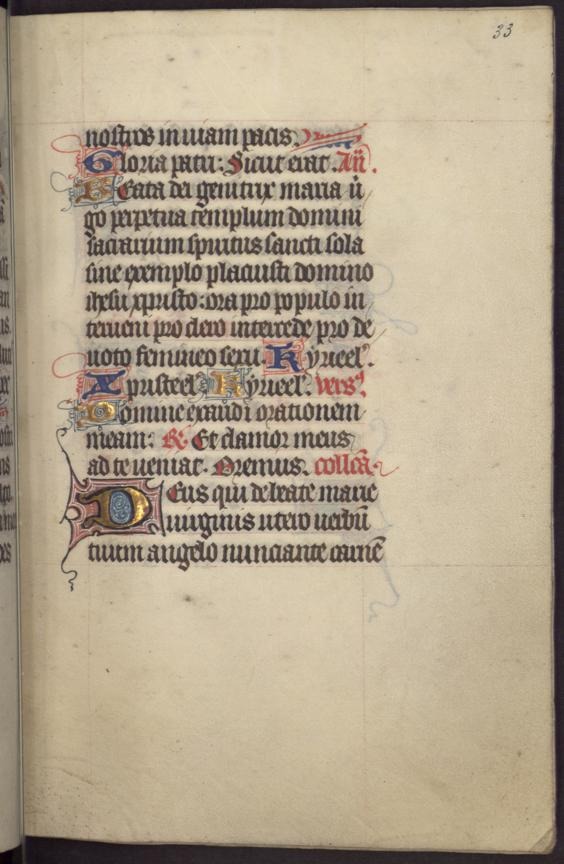 33
nostros in uiam pacis.
Gloria patri: Sicut erat. Añ.
Beata dei genitrix maria ũ
go perpetua templum domini
sacrarium spiritus sancti sola
sine exemplo placuisti domino
ihesu xpristo: ora pro populo in
terueni pro clero intercede pro de
uoto femineo sexu. Kyrieel'.
Xpristeel' Kyrieel'. vers'.
Domine exaudi orationem
meam: R. Et clamor meus
ad te ueniat. Oremus. collcã.
Deus qui de beate marie
uirginis utero uerbũ
tuum angelo nunciante carnẽ